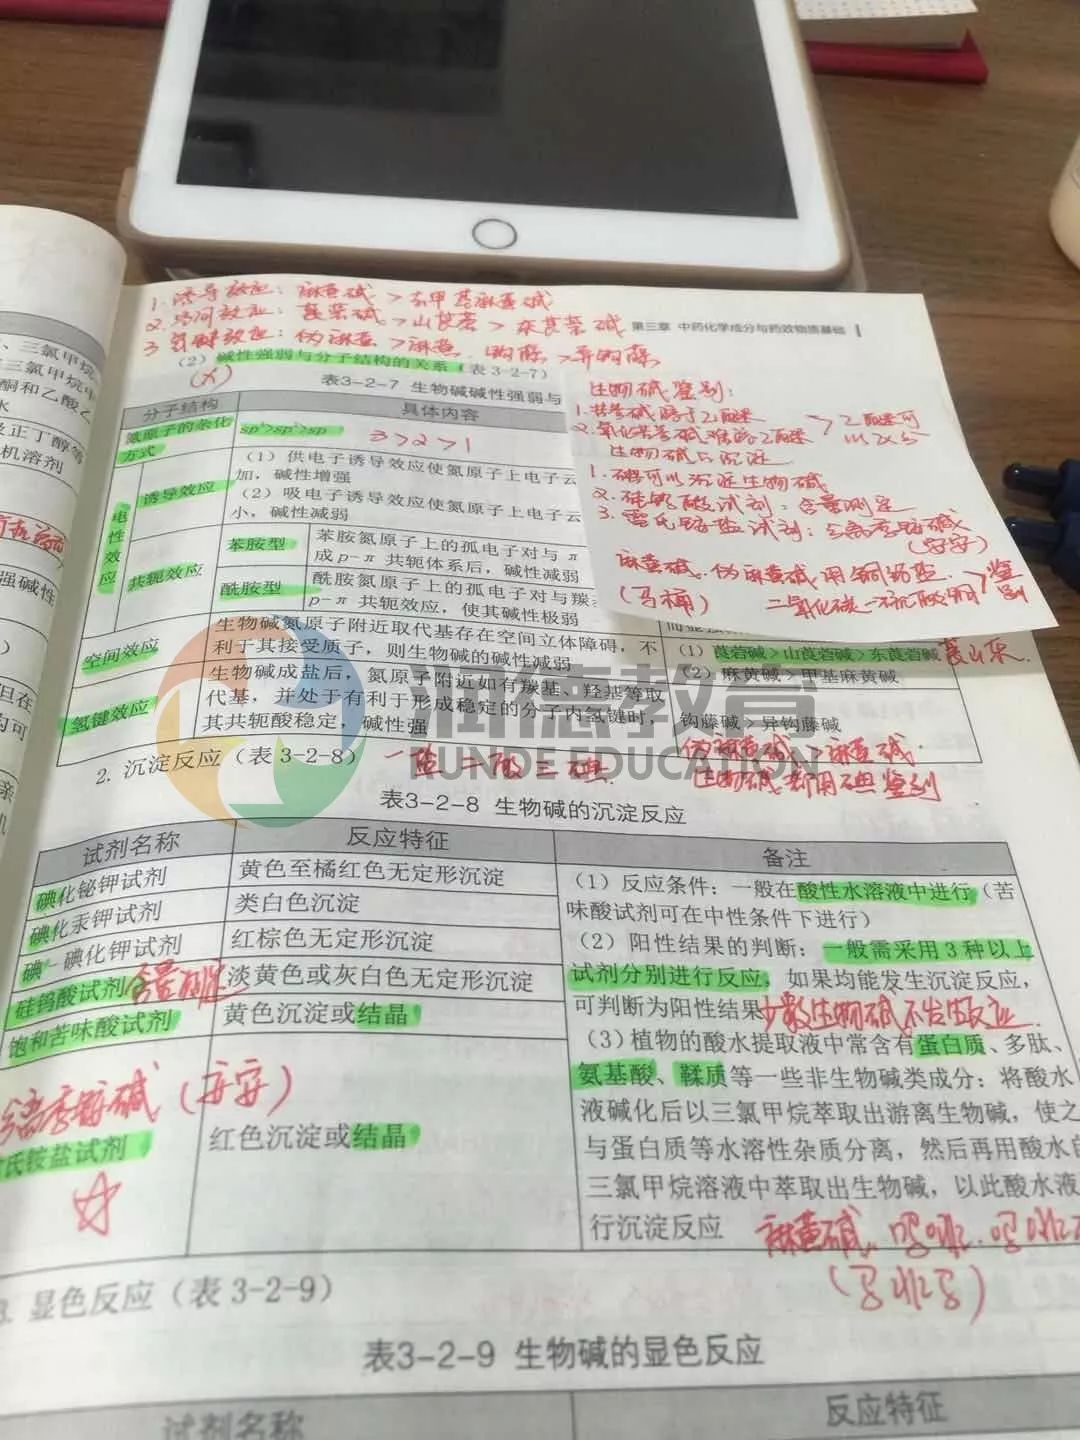 1. 诱导效应：麻黄碱 > 去甲基麻黄碱
2. 空间效应：莨菪碱 > 山莨菪 > 东莨菪碱
第三章 中药化学成分与药效物质基础
3 氢键效应：伪麻黄 > 麻黄. 钩藤 > 异钩藤
（2）碱性强弱与分子结构的关系（表3-2-7）
表3-2-7 生物碱碱性强弱与
生物碱鉴别：
分子结构
具体内容
氮原子的杂化方式
sp³>sp²>sp
3>2>1
电性效应
诱导效应
（1）供电子诱导效应使氮原子上电子云
加，碱性增强
（2）吸电子诱导效应使氮原子上电子云
小，碱性减弱
共轭效应
苯胺型
苯胺氮原子上的孤电子对与 π
成 p-π 共轭体系后，碱性减弱
酰胺型
酰胺氮原子上的孤电子对与羰
p-π 共轭效应，使其碱性极弱
空间效应
生物碱氮原子附近取代基存在空间立体障碍，不
利于其接受质子，则生物碱的碱性减弱
（1）莨菪碱>山莨菪碱>东莨菪碱
莨山东.
（2）麻黄碱>甲基麻黄碱
氢键效应
生物碱成盐后，氮原子附近如有羰基、羟基等取
代基，并处于有利于形成稳定的分子内氢键时，
其共轭酸稳定，碱性强
钩藤碱>异钩藤碱
1.
2. 氧化苦参碱难溶乙醚
生物碱与沉淀
1. 碘可以沉淀生物碱
2. 硅钨酸试剂：含量测定
3. 雷氏铵盐试剂：分离季铵碱
（安安）
麻黄碱. 伪麻黄碱用铜络盐.
二硫化碳-硫酸铜
鉴别
润德教育
RUNDE EDUCATION
2. 沉淀反应（表3-2-8）
一盐二酸三碘
伪麻黄碱 > 麻黄碱.
生物碱都用碘鉴别
表3-2-8 生物碱的沉淀反应
试剂名称
反应特征
备注
碘化铋钾试剂
黄色至橘红色无定形沉淀
碘化汞钾试剂
类白色沉淀
碘-碘化钾试剂
红棕色无定形沉淀
硅钨酸试剂
含量测定
淡黄色或灰白色无定形沉淀
饱和苦味酸试剂
黄色沉淀或结晶
分离季铵碱（安安）
氏铵盐试剂
红色沉淀或结晶
（1）反应条件：一般在酸性水溶液中进行（苦
味酸试剂可在中性条件下进行）
（2）阳性结果的判断：一般需采用3种以上
试剂分别进行反应，如果均能发生沉淀反应，
可判断为阳性结果
少数生物碱不发生反应.
（3）植物的酸水提取液中常含有蛋白质、多肽、
氨基酸、鞣质等一些非生物碱类成分：将酸水
液碱化后以三氯甲烷萃取出游离生物碱，使之
与蛋白质等水溶性杂质分离，然后再用酸水自
三氯甲烷溶液中萃取出生物碱，以此酸水液
行沉淀反应
麻黄碱
3. 显色反应（表3-2-9）
表3-2-9 生物碱的显色反应
试剂名称
反应特征